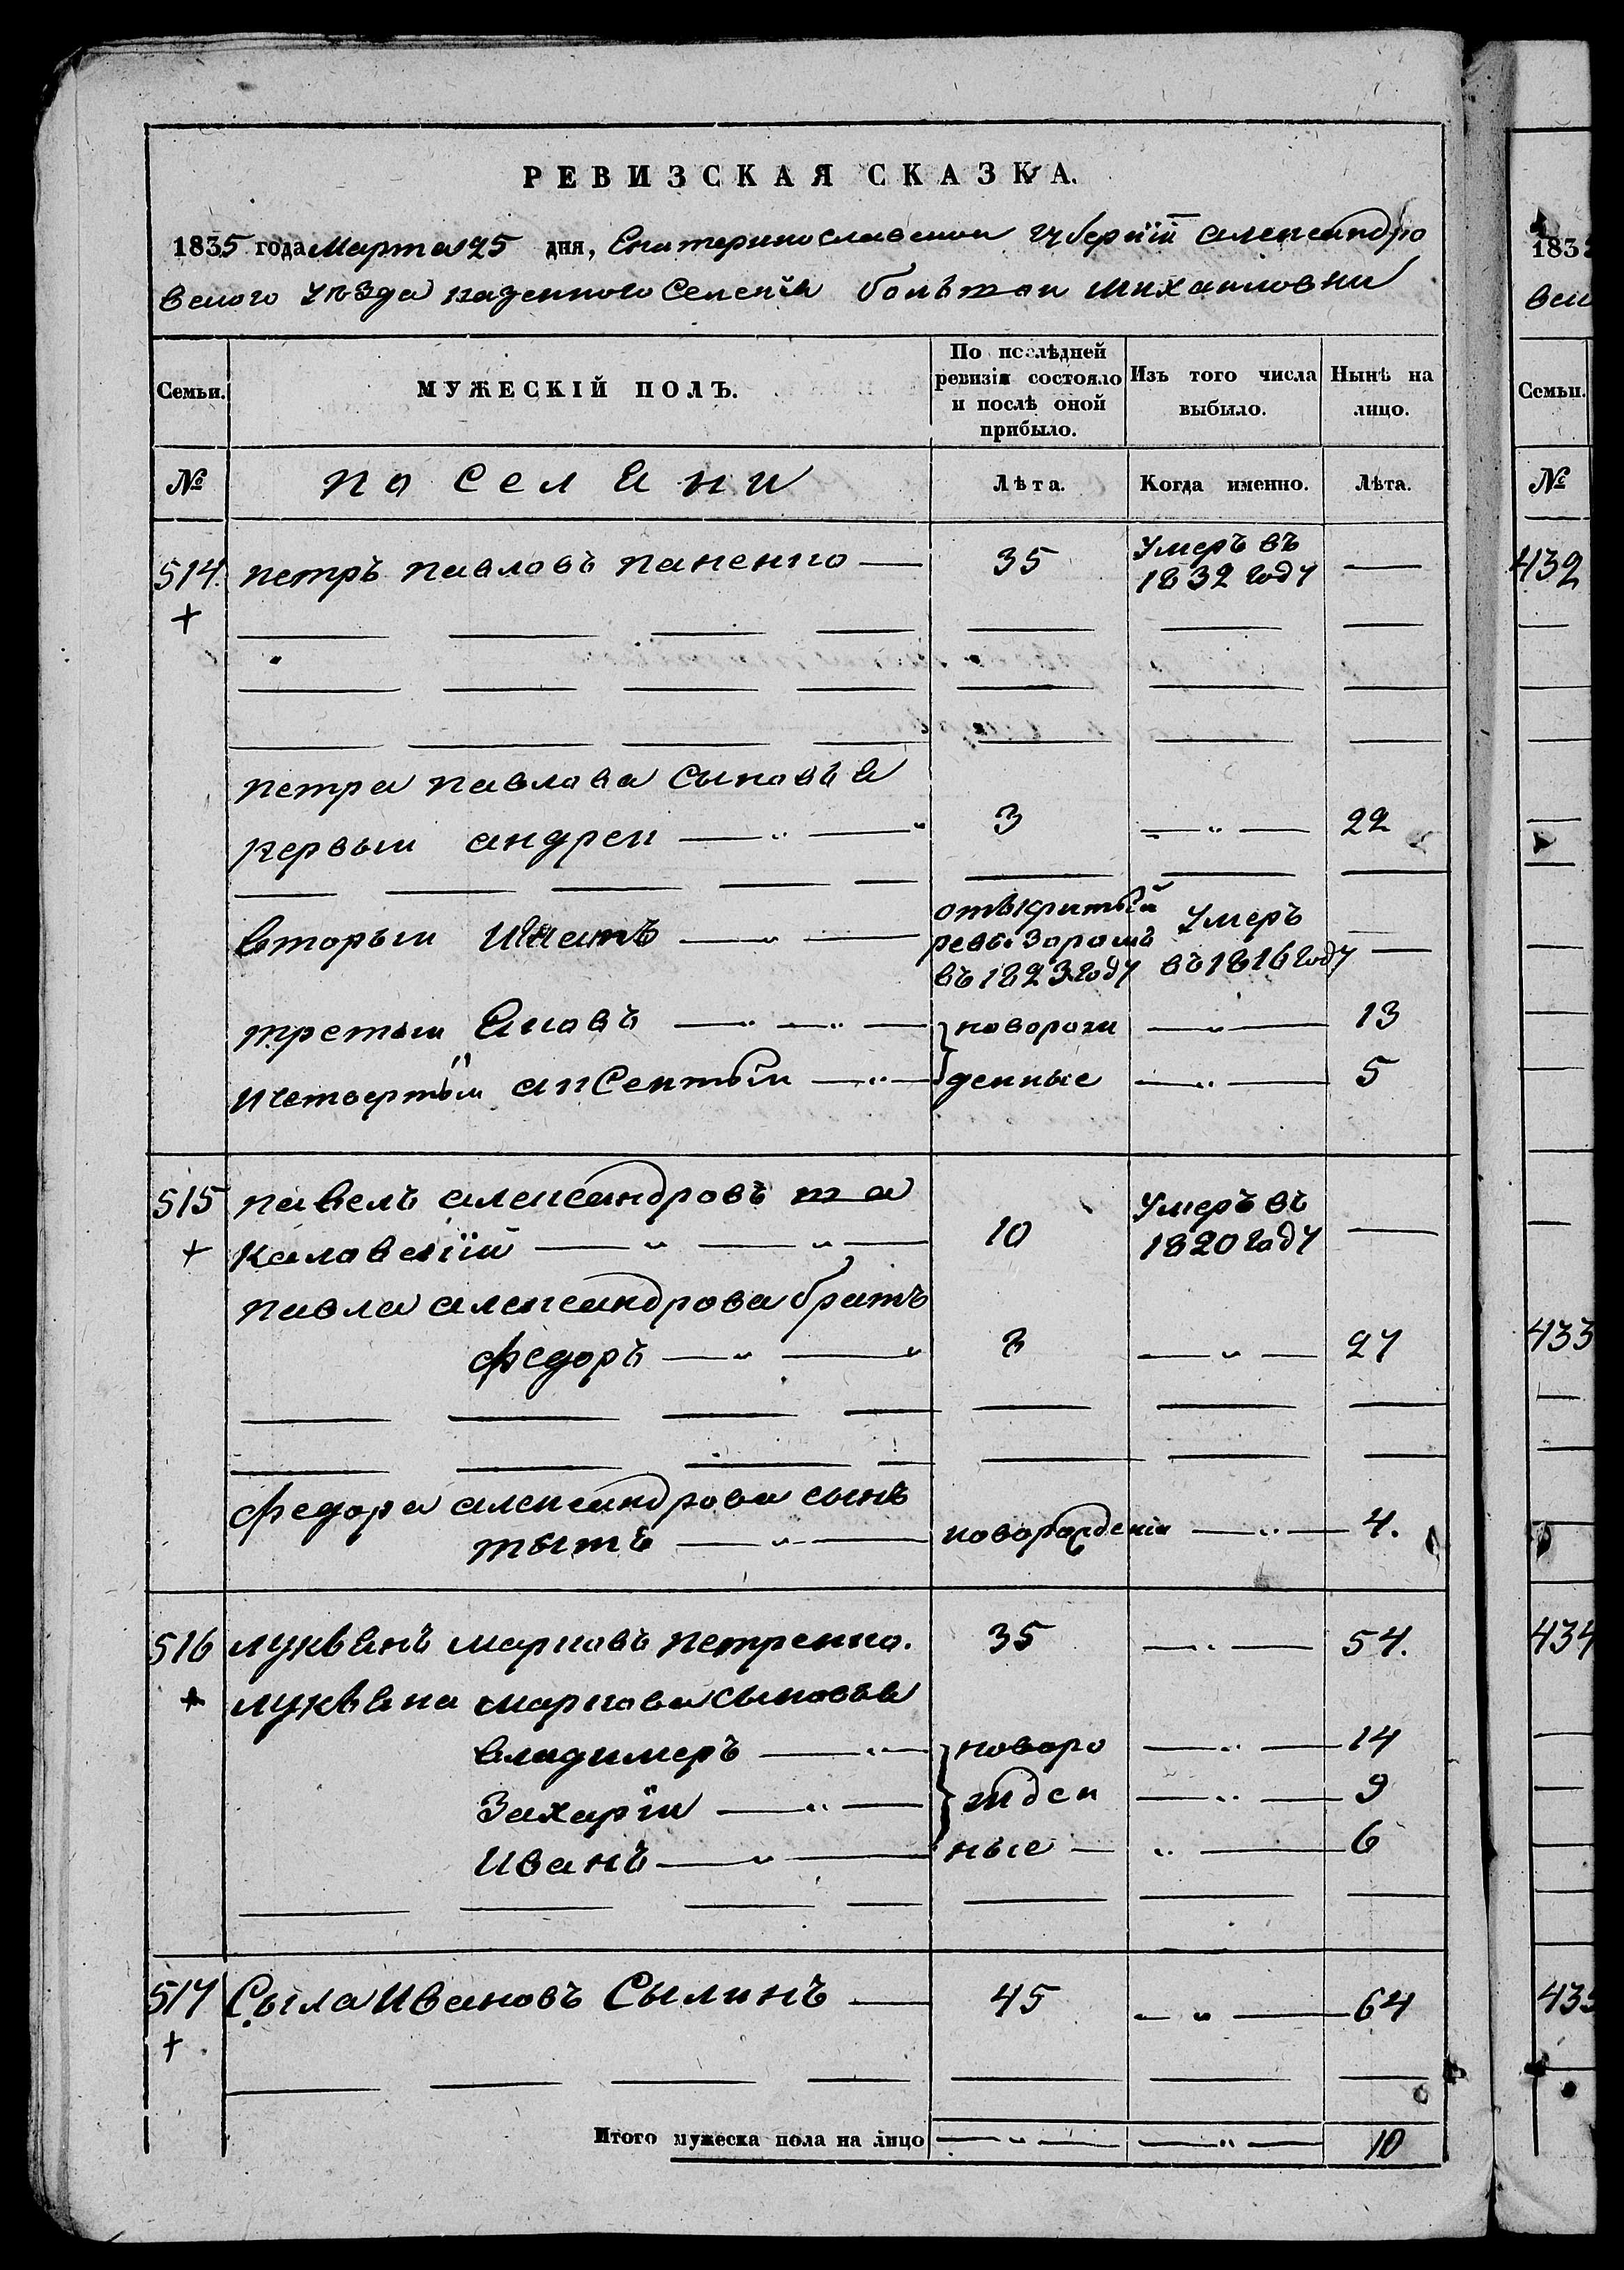 РЕВИЗСКАЯ СКАЗКА.
1835 года Марта 25 дня, Екатеринославской губернїй александро
вского уѣзда казенного Селенїя больтои михаиловки
Семьи.
МУЖЕСКІЙ ПОЛЪ.
По послѣдней ревизіи состояло и послѣ оной прибыло.
Изъ того числа выбыло.
Нынѣ на лицо.
№
поселяни
Лѣта.
Когда именно.
Лѣта.
514. петръ павловъ паненко 35 Умеръ въ 1832 году
петра павлова сыновъя
первыи андреи 3 22
вторыи Игнатъ отъкритый ревизоромъ въ 1823 году Умеръ въ 1816 году
третыи Яковъ новорож 13
ичетвертый авсентый денные 5
515 павелъ александровъ ма
каловский 10 Умеръ въ 1820 году
павла александрова братъ
федоръ 8 27
федора александрова сынъ
тытъ новорожденїи 4.
516 лукъянъ марковъ петренко. 35 54.
лукъяна маркова сыновъя
владимеръ новоро 14
Захарїи жден 9
Иванъ ные 6
517 Сыла Ивановъ Сылинъ 45 64
Итого мужеска пола на лицо 10
183
вск
Семьи.
№
432
433
434
435